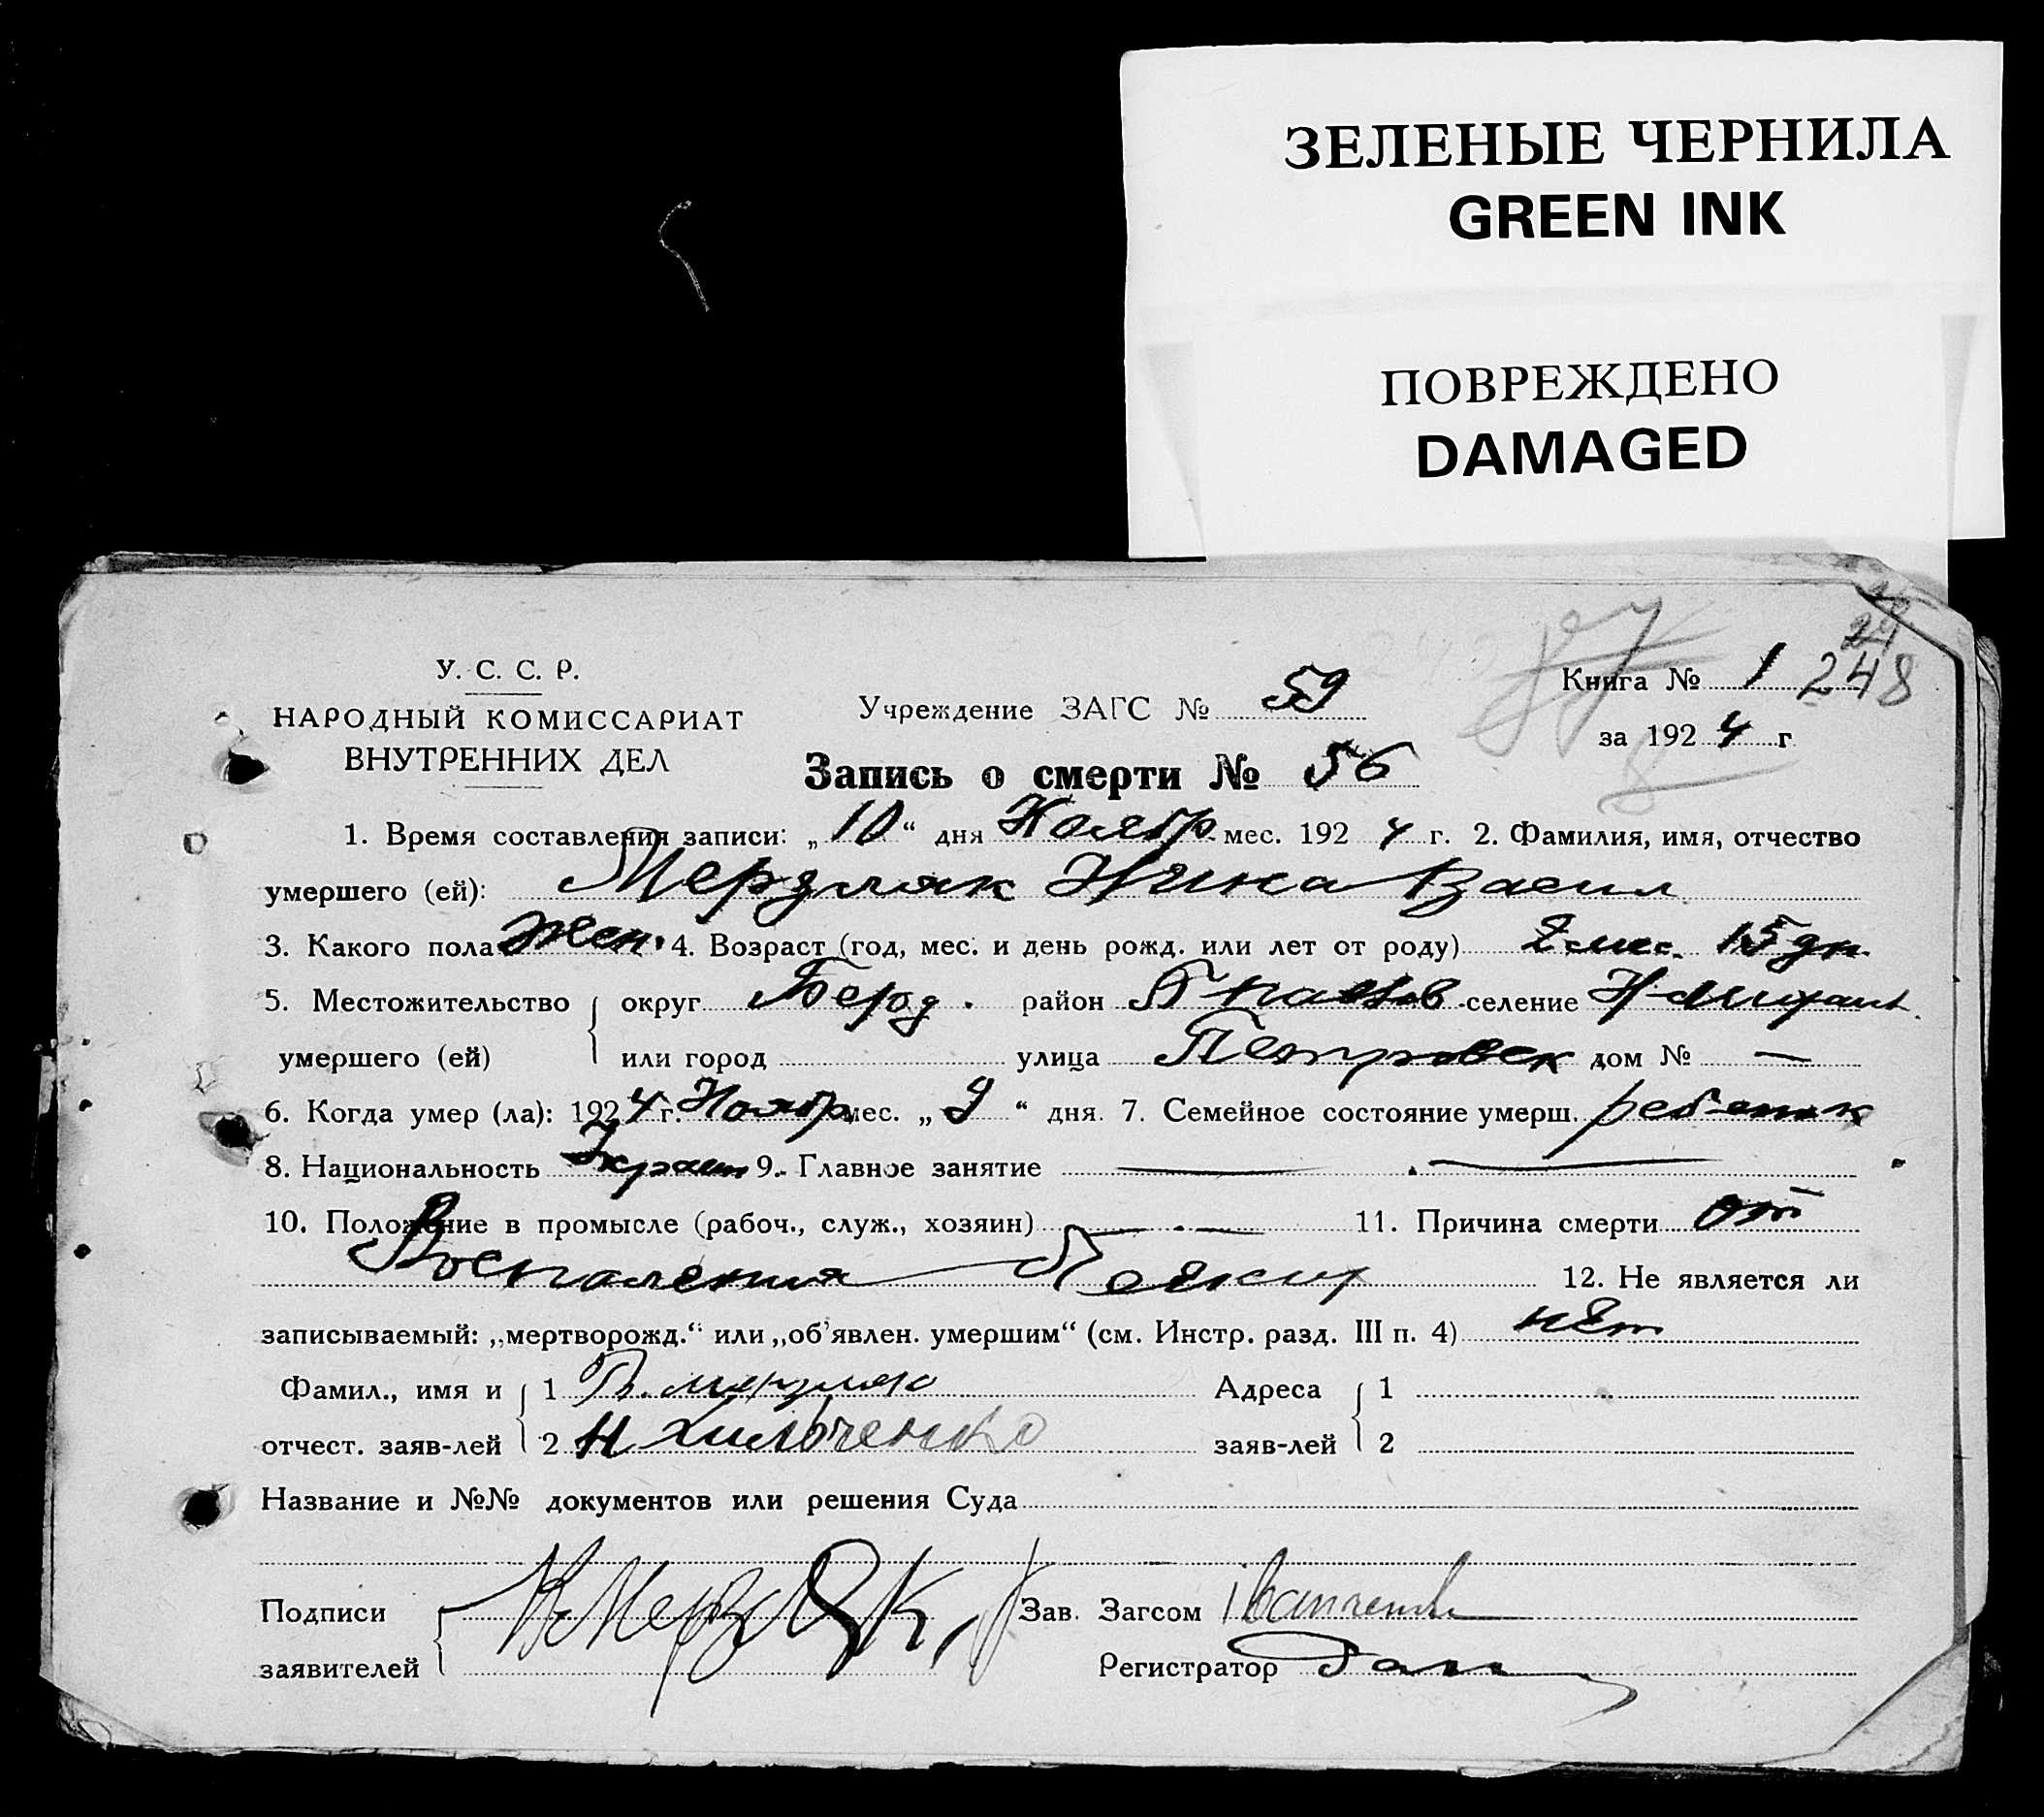 ЗЕЛЕНЫЕ ЧЕРНИЛА
GREEN INK
ПОВРЕЖДЕНО
DAMAGED
У. С. С. Р.
НАРОДНЫЙ КОМИССАРИАТ
ВНУТРЕННИХ ДЕЛ
Учреждение ЗАГС № 59
Книга № 1 248
за 1924 г
Запись о смерти № 56
1. Время составления записи: „10“ дня Ноябр мес. 1924 г. 2. Фамилия, имя, отчество
умершего (ей): Мерзляк Нина Васил
3. Какого пола жен. 4. Возраст (год, мес. и день рожд. или лет от роду) 2 мес. 15 дн.
5. Местожительство округ Берд. район селение
умершего (ей) или город улица Петровск дом № —
6. Когда умер (ла): 1924 г. Ноябр мес. „9“ дня. 7. Семейное состояние умерш. ребенок
8. Национальность Украин 9. Главное занятие —
10. Положение в промысле (рабоч., служ., хозяин) — 11. Причина смерти от
Воспаления 12. Не является ли
записываемый: „мертворожд.“ или „об'явлен. умершим“ (см. Инстр. разд. III п. 4) нет
Фамил., имя и 1 В. Мерзляк Адреса 1
отчест. заяв-лей 2 Н Хильченко заяв-лей 2
Название и №№ документов или решения Суда
Подписи Мерзляк Зав. Загсом
заявителей Регистратор